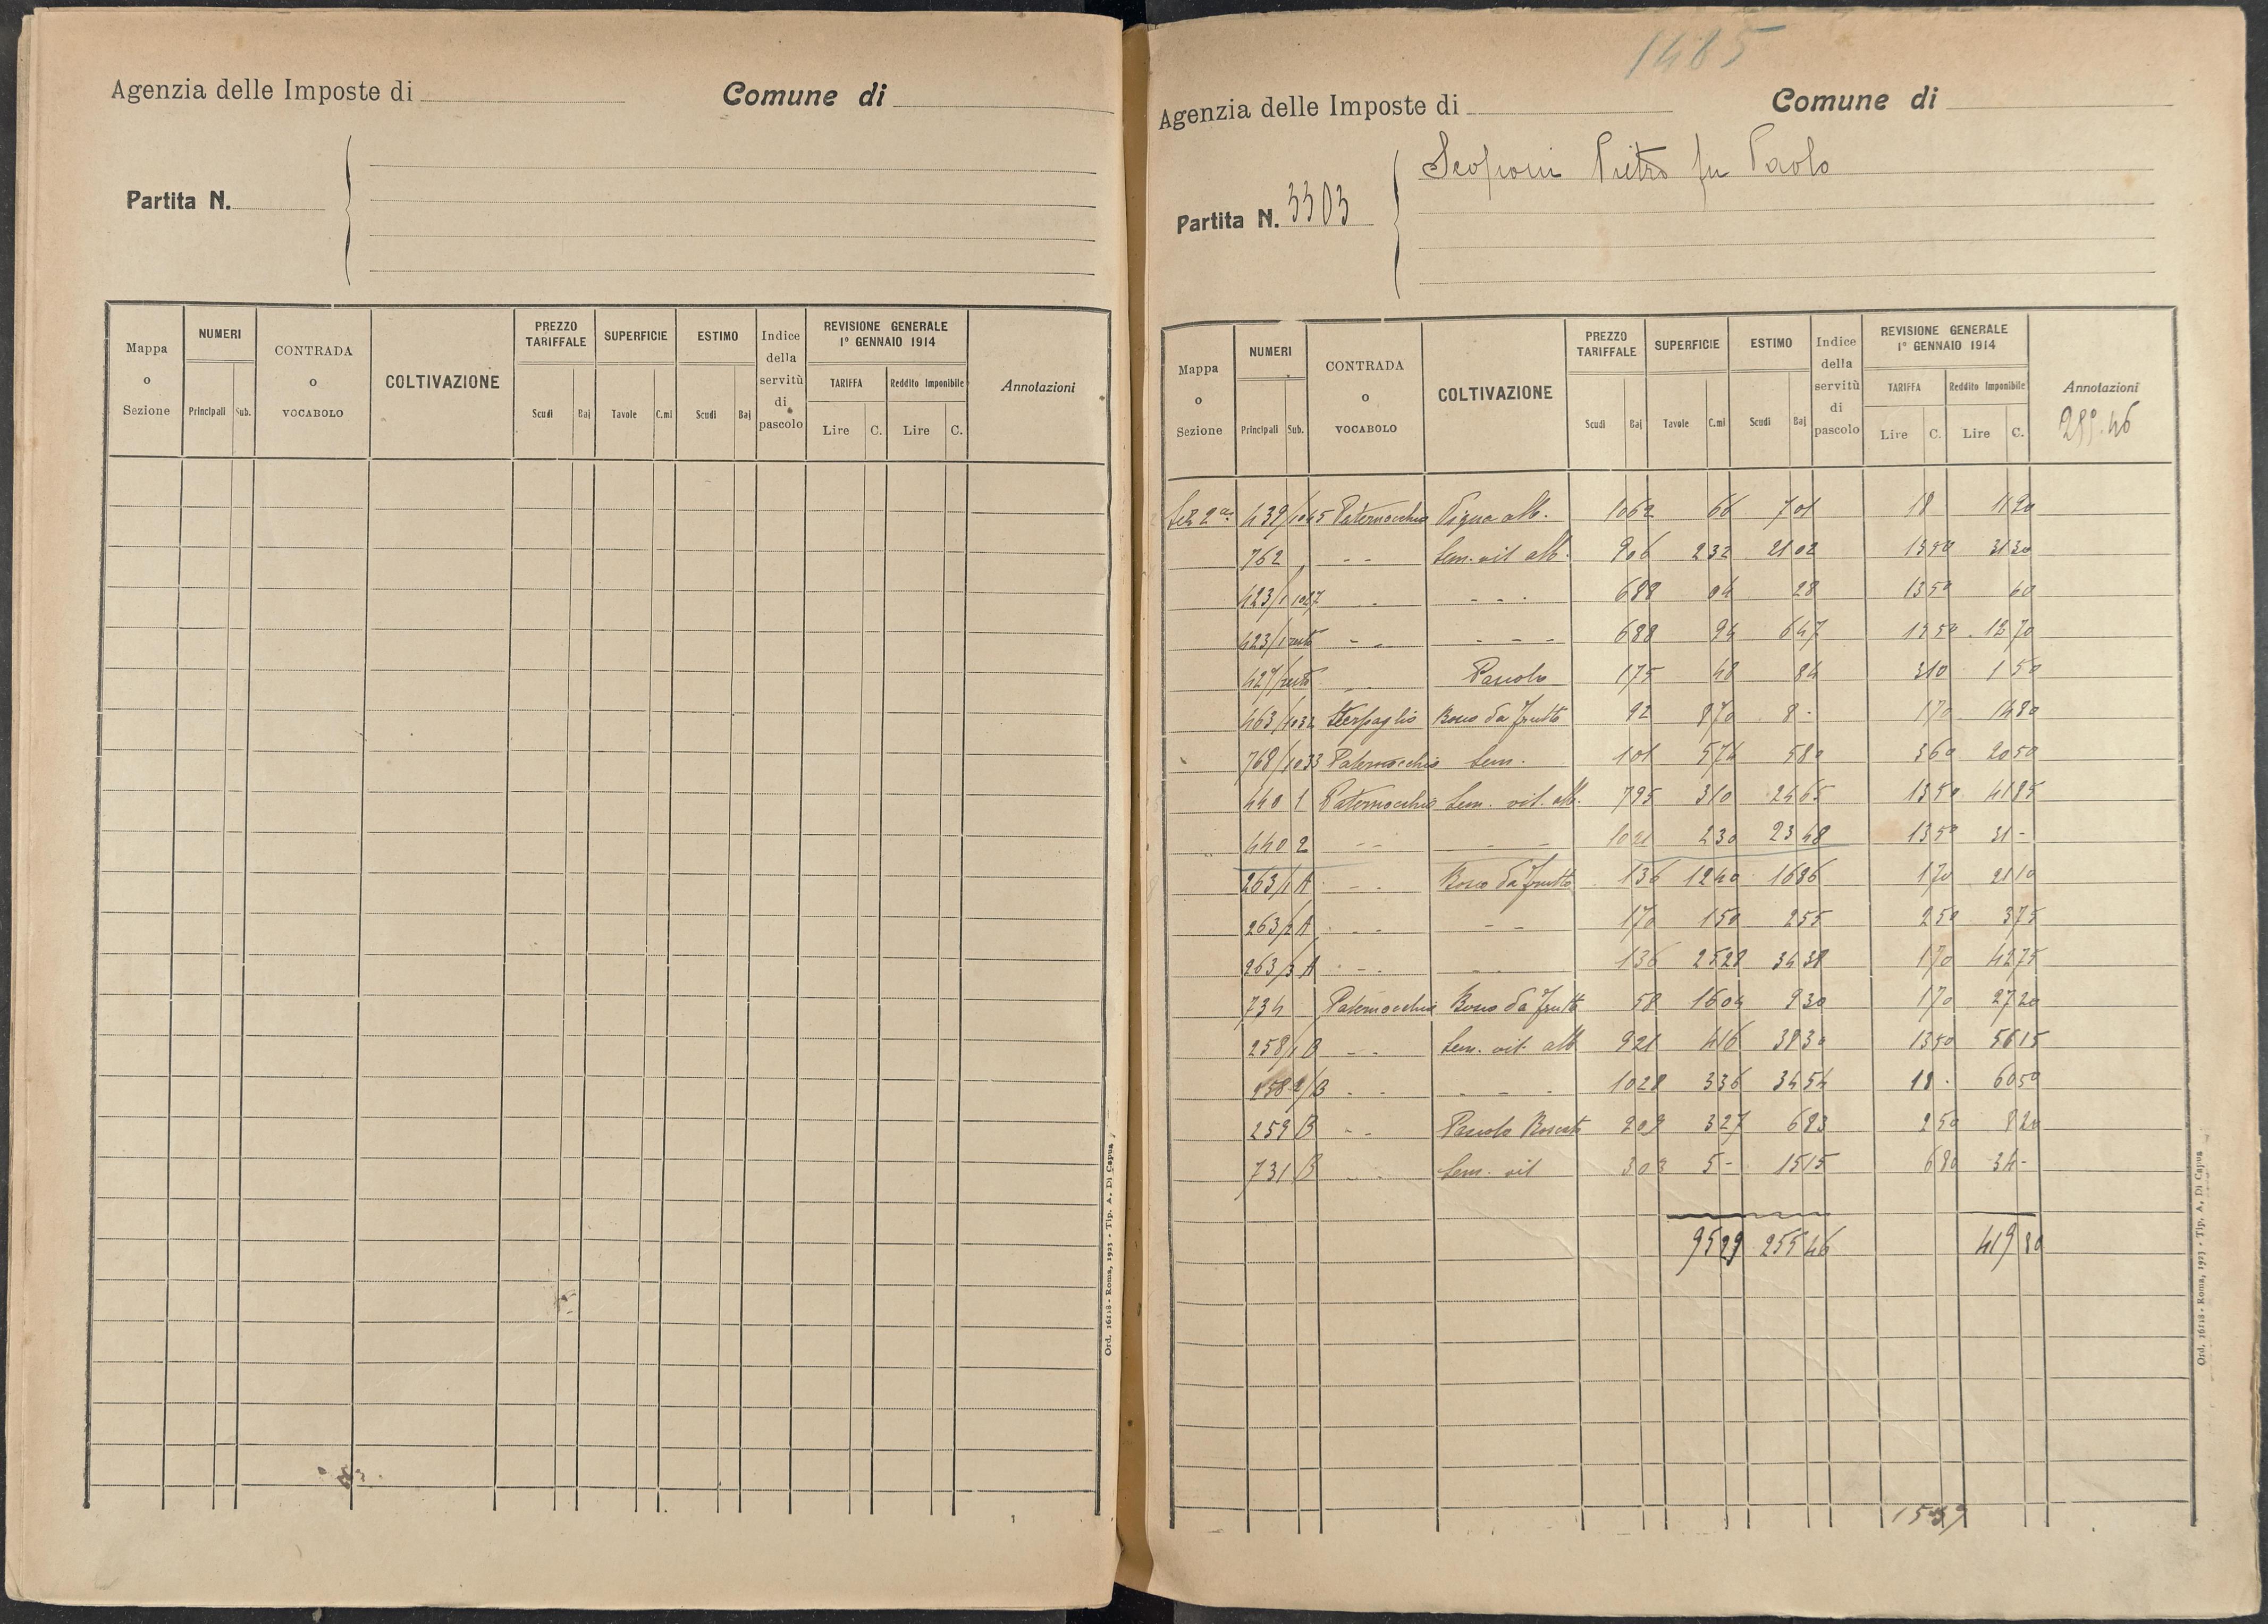 Agenzia delle Imposte di Comune di
Partita N.
Mappa o Sezione NUMERI Principali Sub. CONTRADA o VOCABOLO COLTIVAZIONE PREZZO TARIFFALE Scudi Baj SUPERFICIE Tavole C.mi ESTIMO Scudi Baj Indice della servitù di pascolo REVISIONE GENERALE 1° GENNAIO 1914 TARIFFA Lire C. Reddito Imponibile Lire C. Annotazioni
Ord. 16118 - Roma, 1923 - Tip. A. Di Capua
1485
Agenzia delle Imposte di Comune di
Pietro fu Paolo
Partita N. 3303
Mappa o Sezione NUMERI Principali Sub. CONTRADA o VOCABOLO COLTIVAZIONE PREZZO TARIFFALE Scudi Baj SUPERFICIE Tavole C.mi ESTIMO Scudi Baj Indice della servitù di pascolo REVISIONE GENERALE 1° GENNAIO 1914 TARIFFA Lire C. Reddito Imponibile Lire C. Annotazioni
Sez 2a 439/1045 Paternocchio Vigna alb. 1062 66 701 18 1190
762 - - Sem. vit alb. 906 232 2102 1350 3130
423/1 1027 - - - - - 688 04 28 1350 60
423/1 resto - - - - - 688 94 647 1350 1270
427/resto - - Pascolo 175 48 84 310 150
463/1032 Sterpaglio Bosco da frutto 92 870 8 - 170 1480
768/1033 Paternocchio Sem. 101 574 580 360 2050
440 1 Paternocchio Sem. vit. alb. 795 310 2465 1350 4185
440 2 - - - - - 1021 230 2348 1350 31 -
263/1 A - - Bosco da frutto 136 1240 1686 170 2110
263/2 A - - - - 170 150 255 250 375
263/3 A - - - - 136 2528 3438 170 4275
734 Paternocchio Bosco da frutto 58 1604 930 170 2720
258/1 B - - Sem. vit. alb 921 416 3830 1350 5615
258 2/B - - - - - 1028 336 3454 18 - 6050
259 B - - Pascolo Boscato 209 327 683 250 820
731 B - - Sem. vit 303 5 - 1515 680 34 -
9529 25546 41980
Ord. 16118 - Roma, 1923 - Tip. A. Di Capua